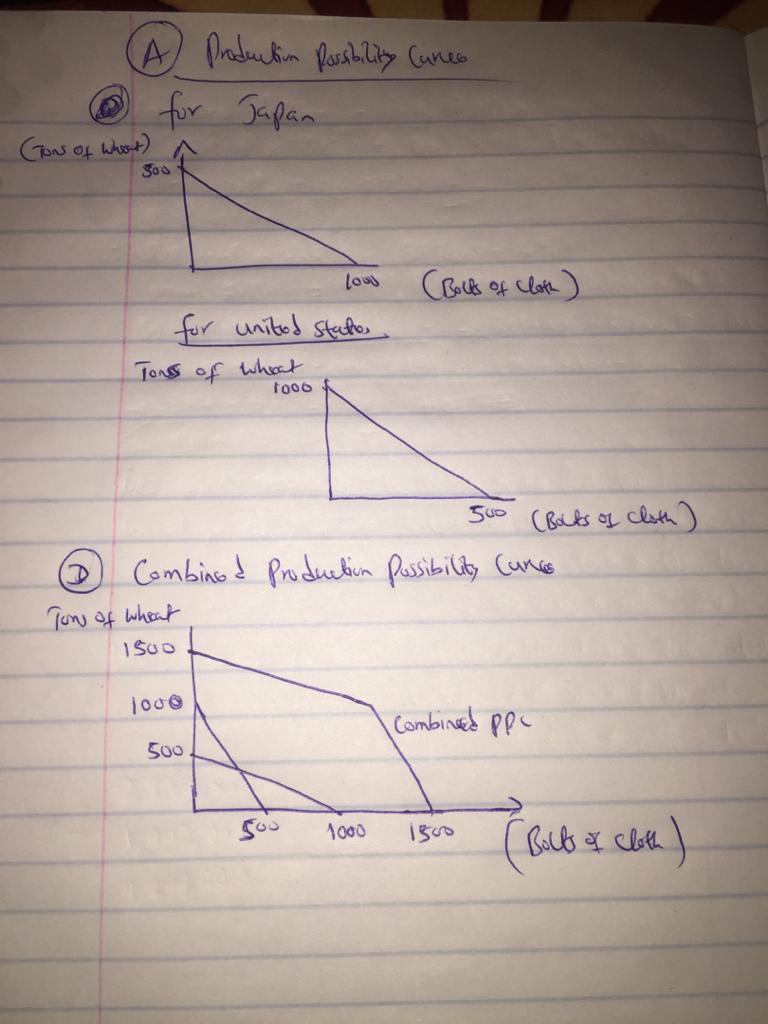 A Production Possibility Curves
for Japan
(Tons of wheat)
500
1000
(Bolts of Cloth)
for united states
Tons of wheat
1000
500
(Bolts of Cloth)
D Combined Production Possibility Curves
Tons of wheat
1500
1000
Combined PPC
500
500 1000 1500
(Bolts of Cloth)